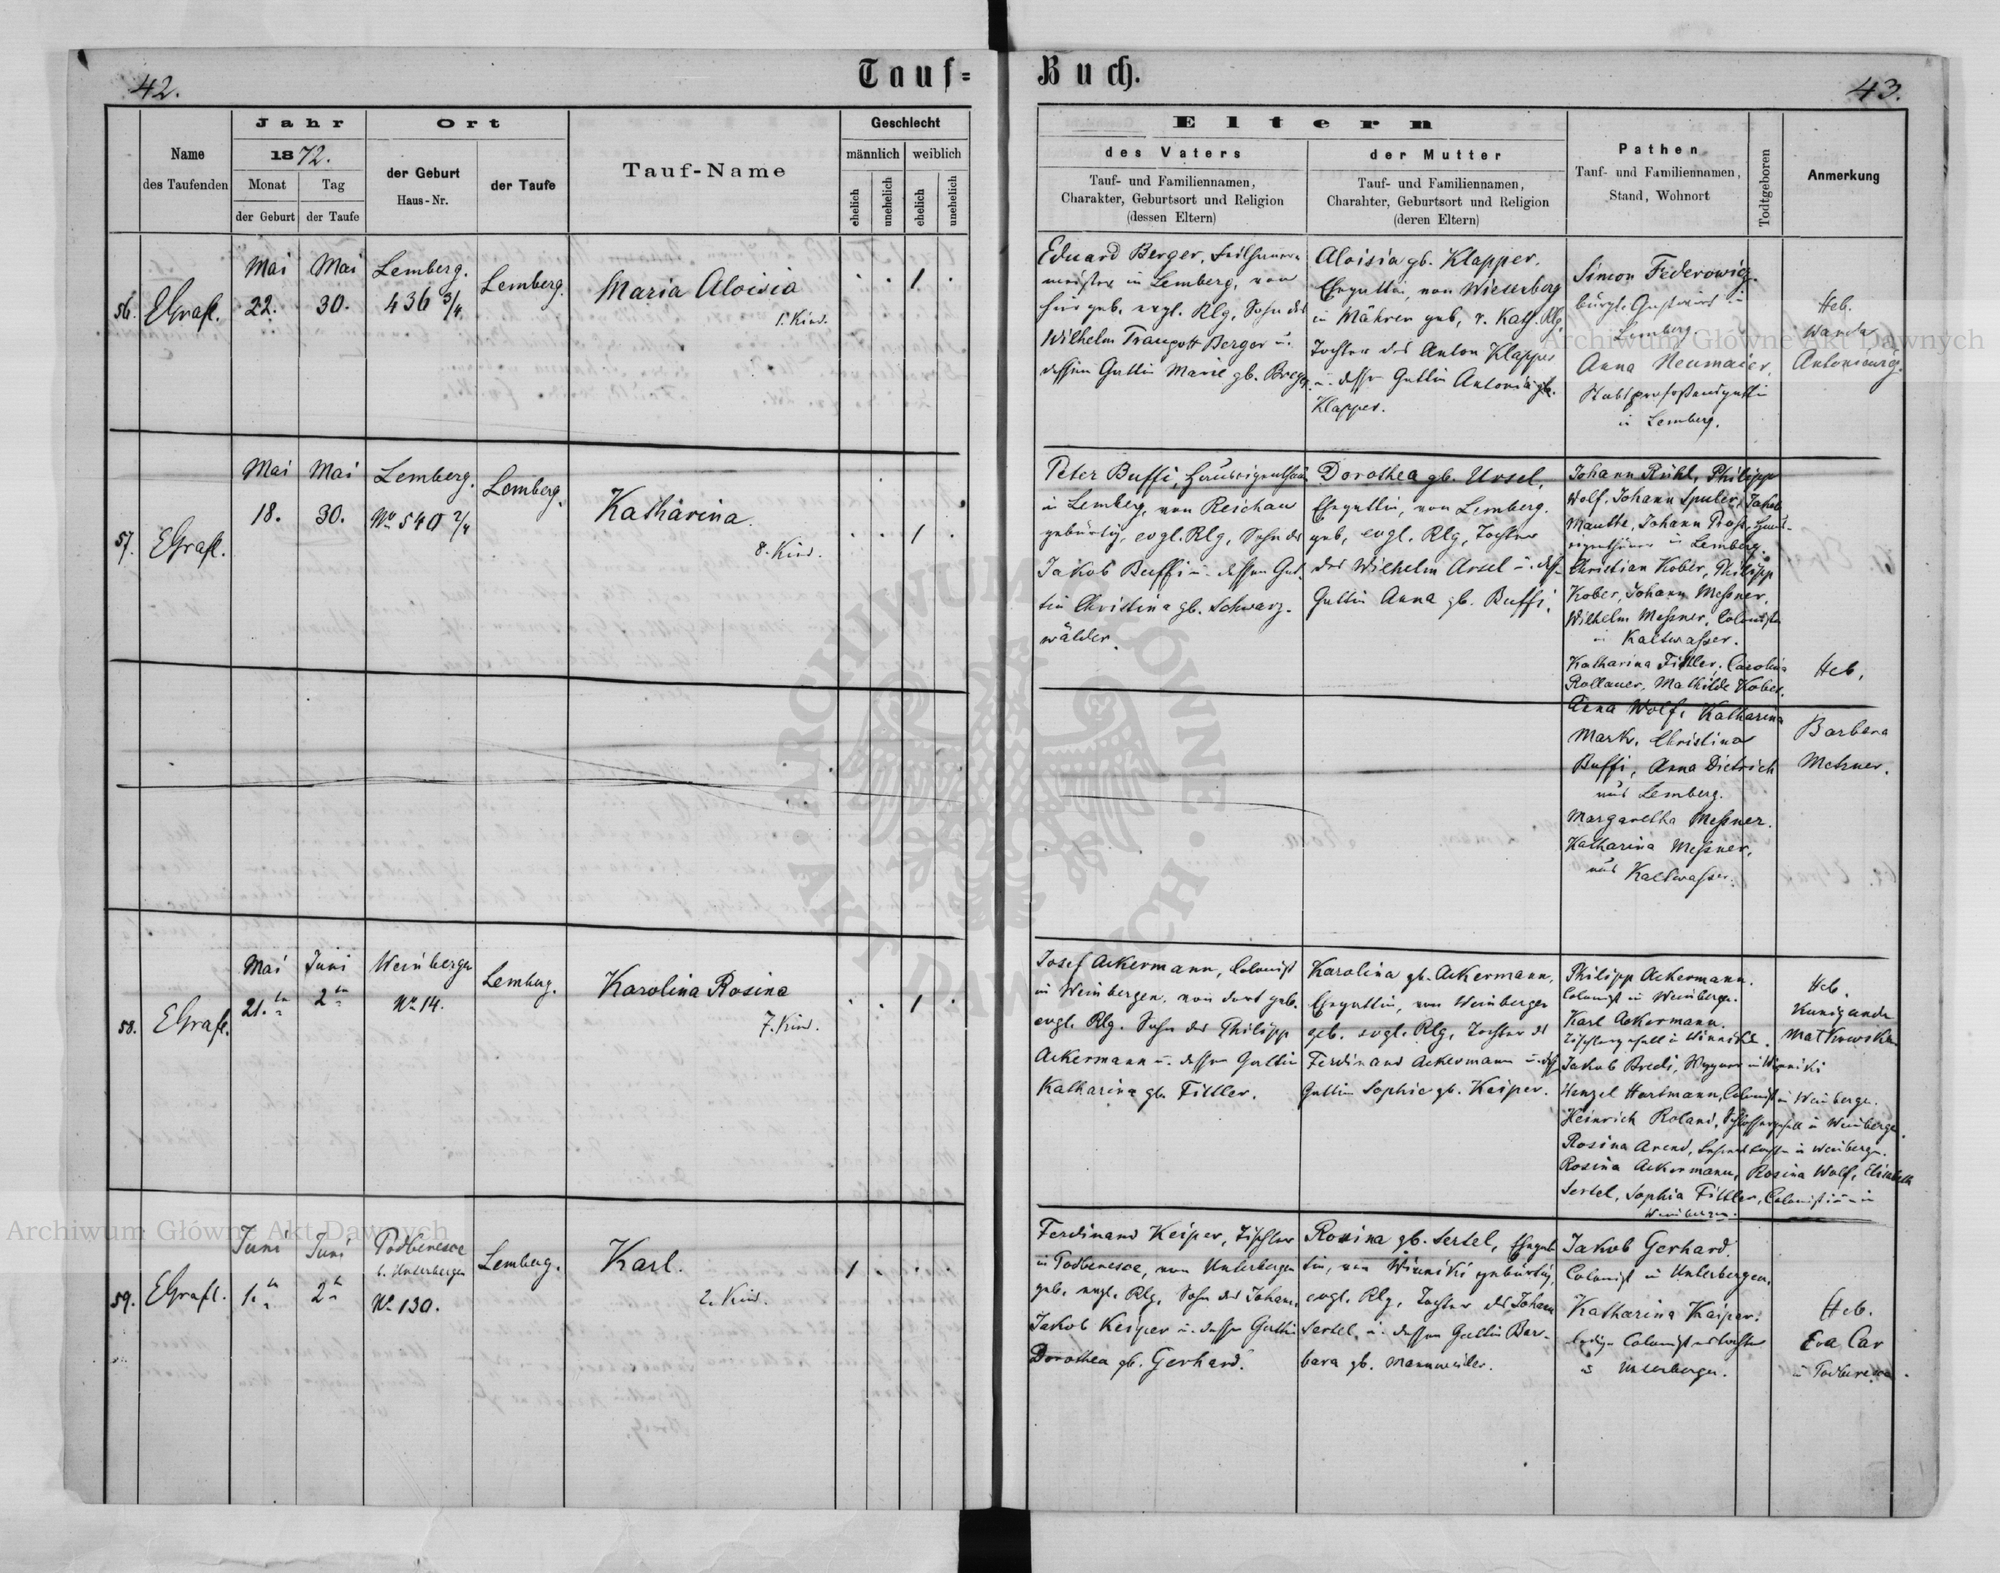 42.
Tauf=
Buch.
43.
Name
des Taufenden
Jahr
1872.
Monat
Tag
der Geburt
der Taufe
Ort
der Geburt
Haus-Nr.
der Taufe
Tauf-Name
Geschlecht
männlich
weiblich
ehelich
unehelich
ehelich
unehelich
Eltern
des Vaters
Tauf- und Familiennamen,
Charakter, Geburtsort und Religion
(dessen Eltern)
der Mutter
Tauf- und Familiennamen,
Charahter, Geburtsort und Religion
(deren Eltern)
Pathen
Tauf- und Familiennamen,
Stand, Wohnort
Todtgeboren
Anmerkung
56.
EGrafl.
Mai
22.
Mai
30.
Lemberg.
436 3/4.
Lemberg.
Maria Aloisia
1. Kind.
1
Eduard Berger,
meister in Lemberg, von
hier geb. evgl. Rlg. Sohn des
Wilhelm Traugott Berger u.
dessen Gattin Marie gb.
Aloisia gb. Klapper.
Ehegattin, von Wiesenberg
in Mähren geb, r. Kath. Rlg.
Tochter des Anton Klapper
u. dessen Gattin Antonia gb.
Klapper.
Simon Federowicz.
Lemberg.
Anna Neumaier.
in Lemberg.
Heb.
Wanda
57.
EGrafl.
Mai
18.
Mai
30.
Lemberg.
No 540 2/4
Lemberg.
Katharina.
8. Kind.
1
Peter Buffi, Hauseigenthümer
in Lemberg, von Reichau
gebürtig, evgl. Rlg, Sohn des
Jakob Buffi u. dessen Gat-
tin Christina gb. Schwarz-
wälder.
Dorothea gb. Ursel,
Ehegattin, von Lemberg.
geb, evgl. Rlg, Tochter
des Wilhelm Ursel u. dessen
Gattin Anna gb. Buffi.
Johann Rühl, Philipp
Wolf, Johann Spuler, Jakob
Mauthe, Johann Haus-
eigenthümer in Lemberg.
Christian Kober, Philipp
Kober, Johann Meßner,
Wilhelm Meßner, Colonisten
in Kaltwasser.
Katharina Fittler, Carolina
Rollauer, Mathilde Kober,
Anna Wolf, Katharina
Mark, Christina
Buffi, Anna Dietrich
aus Lemberg.
Margaretha Meßner.
Katharina Meßner,
aus Kaltwasser.
Heb.
Barbara
Metzner.
58.
EGrafl.
Mai
21. tn
Juni
2 tn
Weinbergen
No 14.
Lemberg.
Karolina Rosina
7. Kind.
1
Josef Ackermann, Colonist
in Weinbergen, von dort geb.
evgl. Rlg. Sohn des Philipp
Ackermann u. dessen Gattin
Katharina gb. Fittler.
Karolina gb. Ackermann,
Ehegattin, von Weinbergen
geb. evgl. Rlg, Tochter des
Ferdinand Ackermann u. dess.
Gattin Sophie gb. Keiper.
Philipp Ackermann.
Colonist in Weinbergen.
Karl Ackermann.
Tischlergesell in Winniki.
Jakob Bredi, Wagner in Winniki
Henzel Hartmann, Colonist in Weinbergen.
Heinrich Roland, Schlossergesell in Weinbergen.
Rosina Arend, in Weinbergen.
Rosina Ackermann, Rosina Wolf, Elisabeth
Sertel, Sophia Fittler, Colonistinnen in
Weinbergen.
Heb.
Kunigunda
Matkowska
59.
EGrafl.
Juni
1. tn
Juni
2 tn
Podberesce
b. Unterbergen
No 130.
Lemberg.
Karl.
2. Kind.
1
Ferdinand Keiper, Tischler
in Podberesce, von Unterbergen
geb, evgl. Rlg, Sohn des Johann
Jakob Keiper u. dessen Gattin
Dorothea gb. Gerhard.
Rosina gb. Sertel, Ehegat-
tin, von Winniki gebürtig,
evgl. Rlg, Tochter des Johann
Sertel, u. dessen Gattin Bar-
bara gb. Mannweiler.
Jakob Gerhard.
Colonist in Unterbergen.
Katharina Kaiper.
ledige Colonistentochter
in Unterbergen.
Heb.
Eva Car
in Podberesce.
Archiwum Główne Akt Dawnych
Archiwum Główne Akt Dawnych
ARCHIWUM GŁÓWNE AKT DAWNYCH